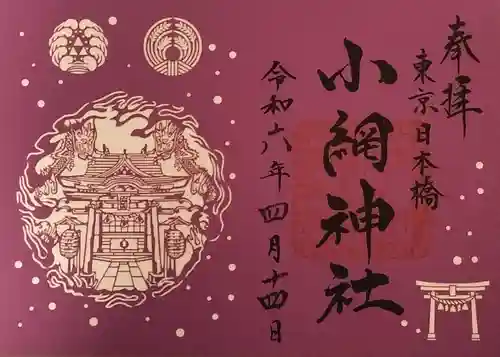 奉拝
東京日本橋
小網神社
令和六年四月十四日